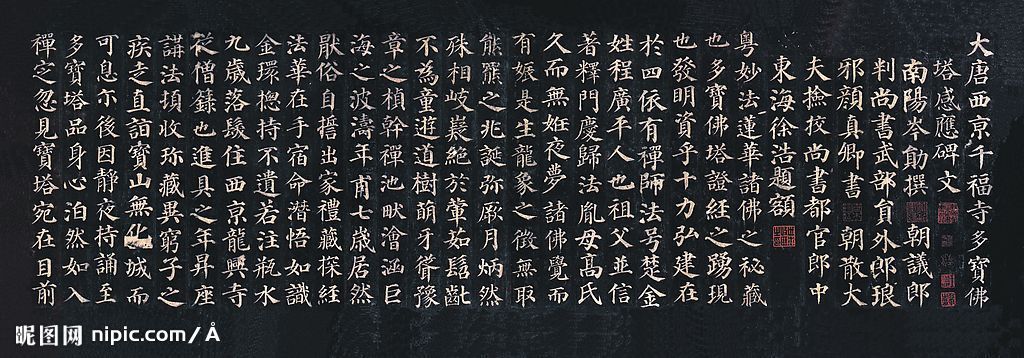 大唐西京千福寺多寶佛
塔感應碑文
南陽岑勛撰 朝議郎
判尚書武部員外郎琅
邪顏真卿書 朝散大
夫撿挍尚書都官郎中
東海徐浩題額
粵妙法蓮華諸佛之秘藏
也多寶佛塔證經之踴現
也發明資乎十力弘建在
於四依有禪師法号楚金
姓程廣平人也祖父並信
著釋門慶歸法胤母高氏
久而無妊夜夢諸佛覺而
有娠是生龍象之徵無取
熊羆之兆誕弥厥月炳然
殊相岐嶷絕於葷茹髫齔
不為童遊道樹萌牙聳豫
章之楨幹禪池畎澮涵巨
海之波濤年甫七歲居然
猒俗自誓出家禮藏探經
法華在手宿命潛悟如識
金環揔持不遺若注瓶水
九歲落髮住西京龍興寺
從僧籙也進具之年昇座
講法頓收珎藏異窮子之
疾走直詣寶山無化城而
可息尒後因靜夜持誦至
多寶塔品身心泊然如入
禪定忽見寶塔宛在目前
昵图网 nipic.com/Å